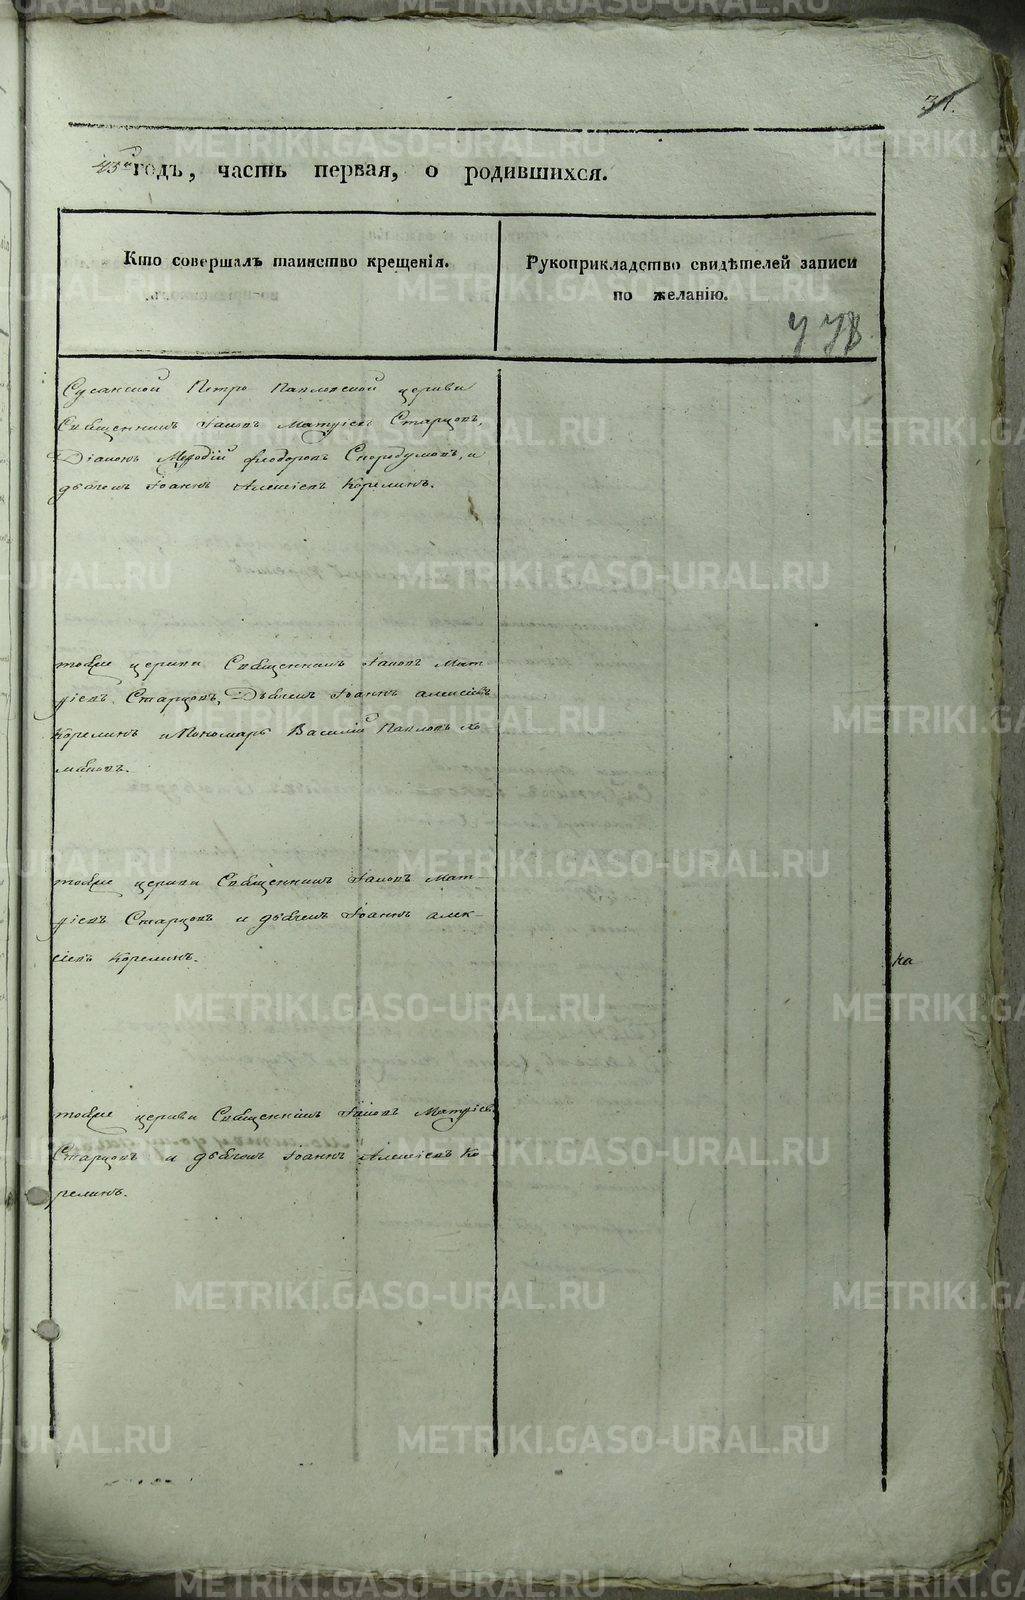 31.
43й годъ, часть первая, о родившихся.
Кто совершалъ таинство крещенія.
Рукоприкладство свидѣтелей записи
по желанію.
Сусанской Петро Павловской церкви
Священникъ Іаковъ Матѳіевъ Старцовъ,
Діаконъ Меѳодій Ѳеодоровъ Словцовъ, и
дьячекъ Іоаннъ Алексіевъ Корелинъ.
тойже церкви Священникъ Іаковъ Мат-
ѳіевъ Старцовъ, Дьячекъ Іоаннъ Алексіевъ
Корелинъ и Пономарь Василій Павловъ
тойже церкви Священникъ Іаковъ Мат-
ѳіевъ Старцовъ и дьячекъ Іоаннъ Алек-
сіевъ Корелинъ.
ка
тойже церкви Священникъ Іаковъ Матѳіевъ
Старцовъ и дьячекъ Іоаннъ Алексіевъ Ко-
релинъ.
METRIKI.GASO-URAL.RU